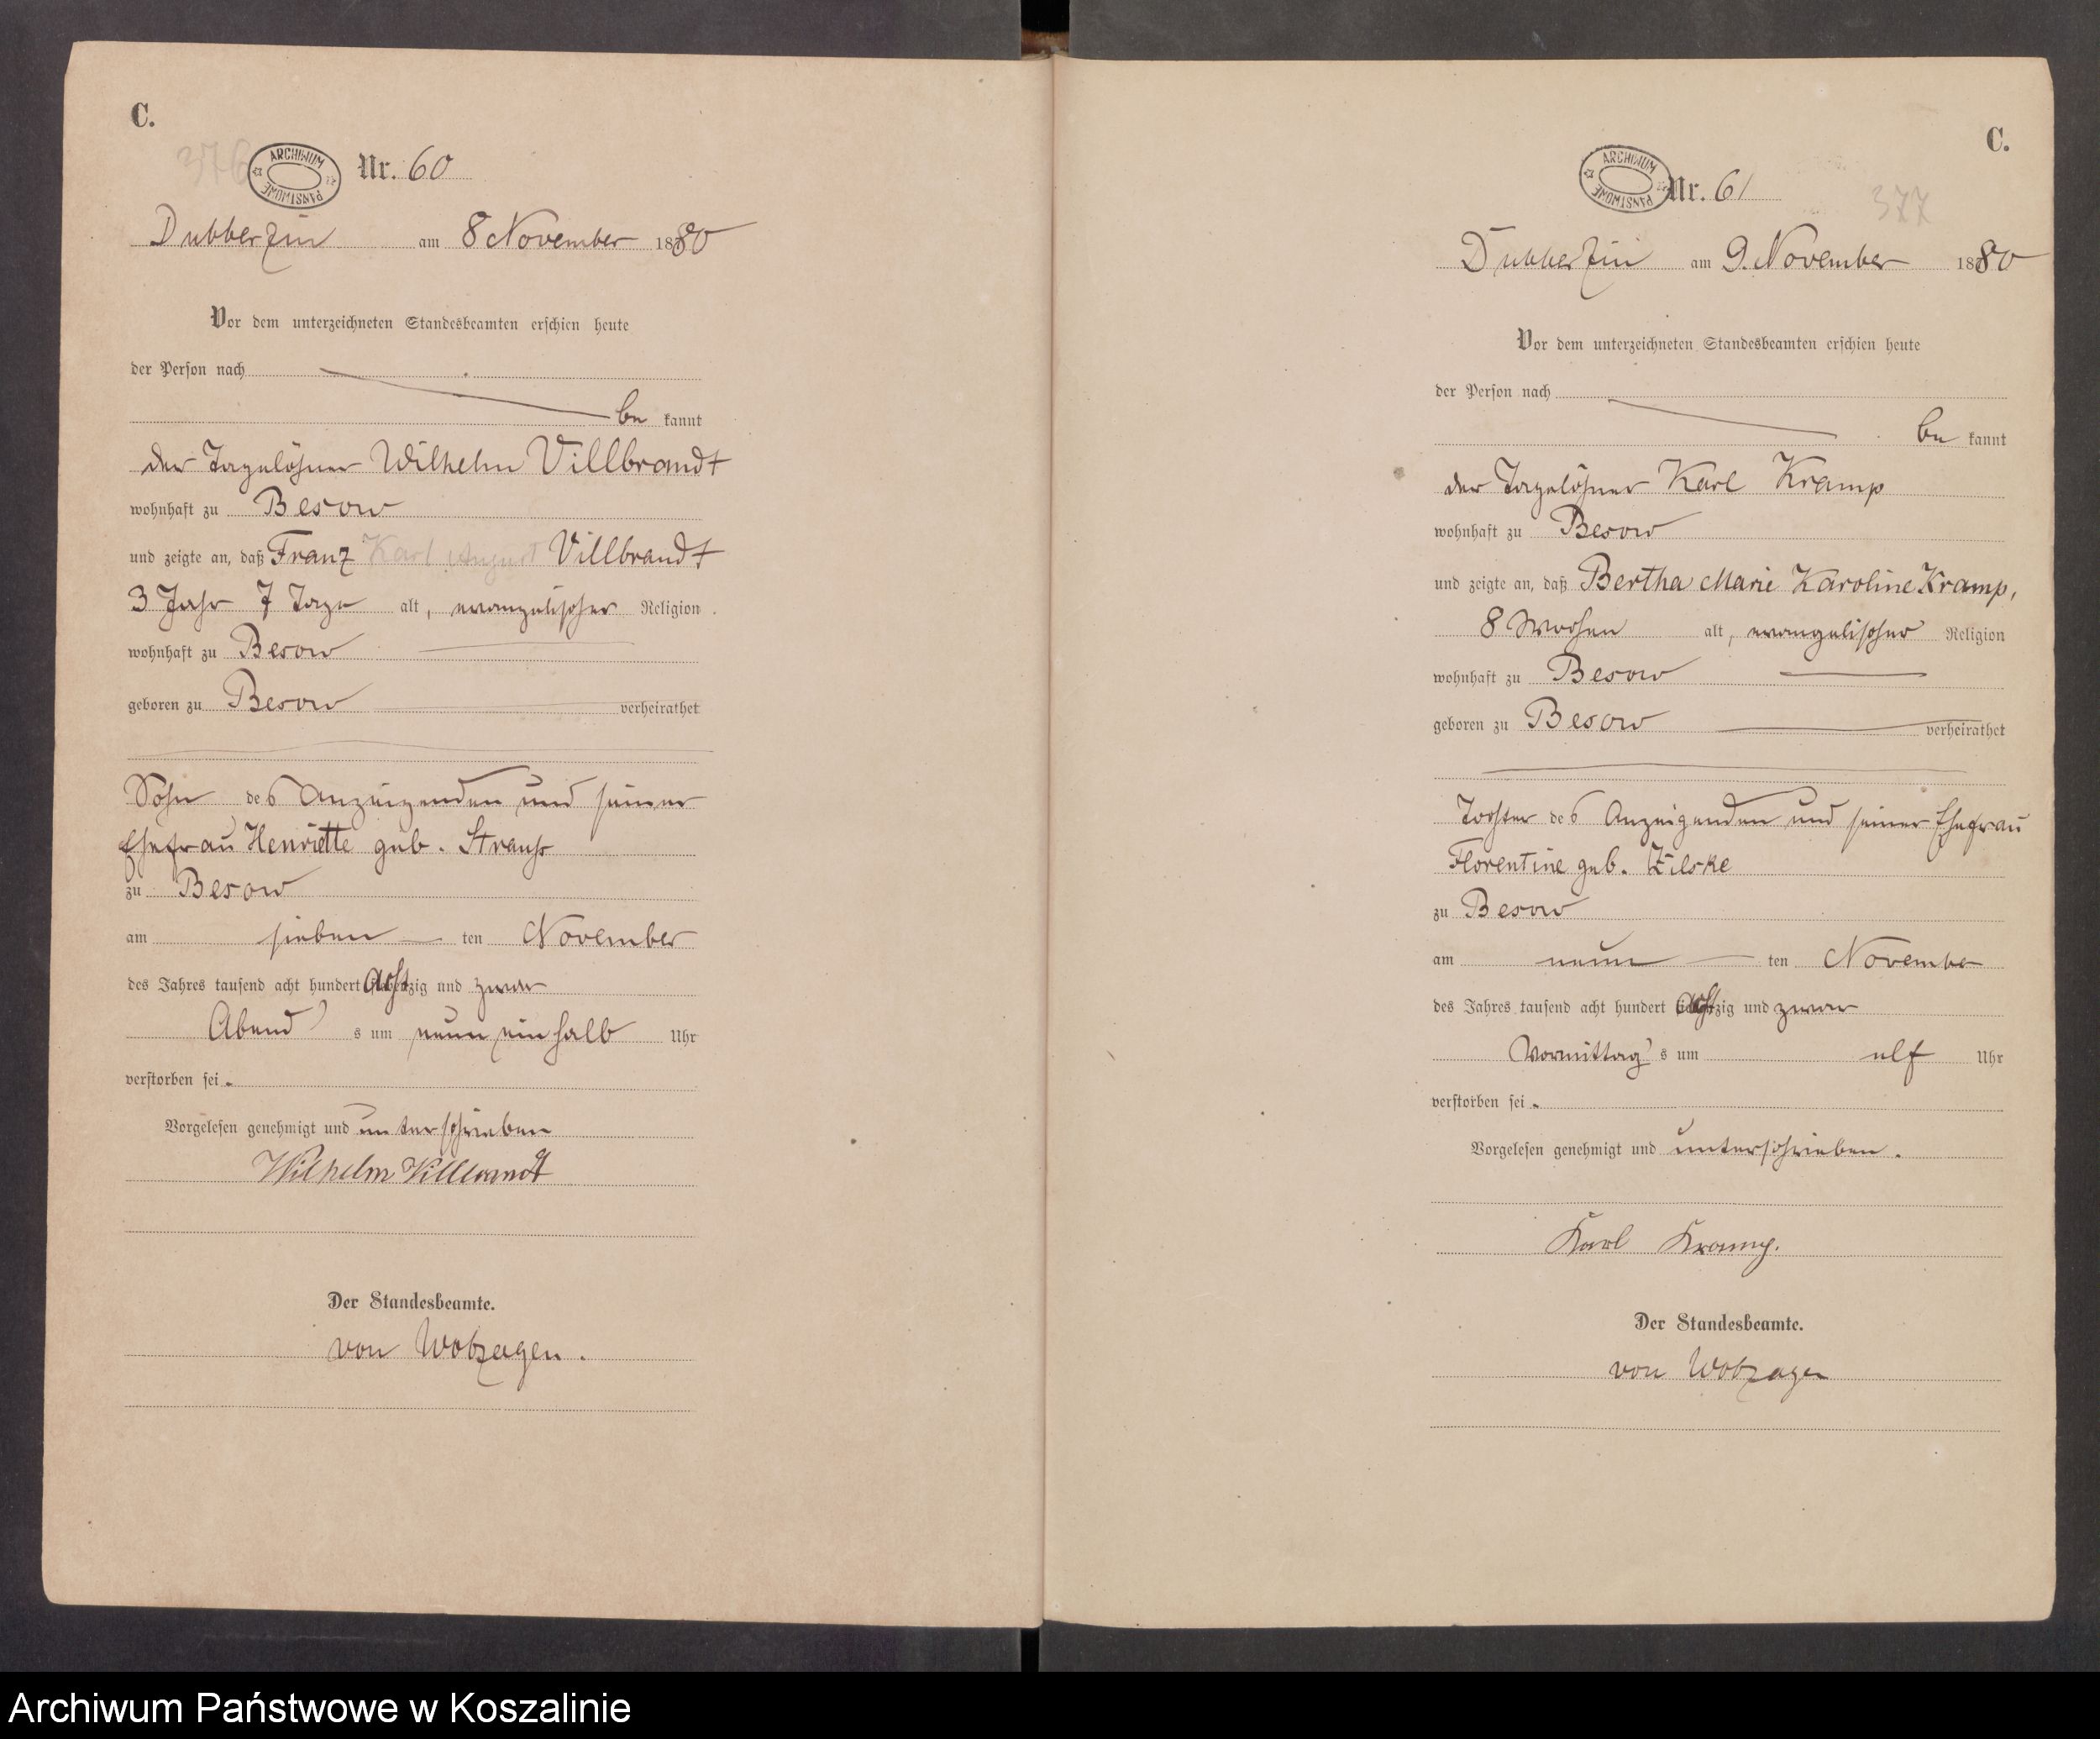 C.
376
ARCHIWUM PAŃSTWOWE
Nr. 60
Dubberzin am 8 November 1880
Vor dem unterzeichneten Standesbeamten erschien heute
der Person nach
be kannt
der Tagelöhner Wilhelm Villbrandt
wohnhaft zu Besow
und zeigte an, daß Franz Karl August Villbrandt
3 Jahr 7 Tage alt, evangelischer Religion
wohnhaft zu Besow
geboren zu Besow verheirathet
Sohn des Anzeigenden und seiner
Ehefrau Henriette geb. Strauss
zu Besow
am sieben ten November
des Jahres tausend acht hundert achtzig und zwar
Abend's um neun ein halb Uhr
verstorben sei.
Vorgelesen genehmigt und unterschrieben
Wilhelm Villbrandt
Der Standesbeamte.
von Wobzagen.
C.
ARCHIWUM PAŃSTWOWE
Nr. 61
377
Dubberzin am 9. November 1880
Vor dem unterzeichneten Standesbeamten erschien heute
der Person nach
be kannt
der Tagelöhner Karl Kramp
wohnhaft zu Besow
und zeigte an, daß Bertha Marie Karoline Kramp,
8 Wochen alt, evangelischer Religion
wohnhaft zu Besow
geboren zu Besow verheirathet
Tochter des Anzeigenden und seiner Ehefrau
Florentine geb. Zilske
zu Besow
am neun ten November
des Jahres tausend acht hundert achtzig und zwar
Vormittag's um elf Uhr
verstorben sei.
Vorgelesen genehmigt und unterschrieben.
Karl Kramp.
Der Standesbeamte.
von Wobzagen
Archiwum Państwowe w Koszalinie